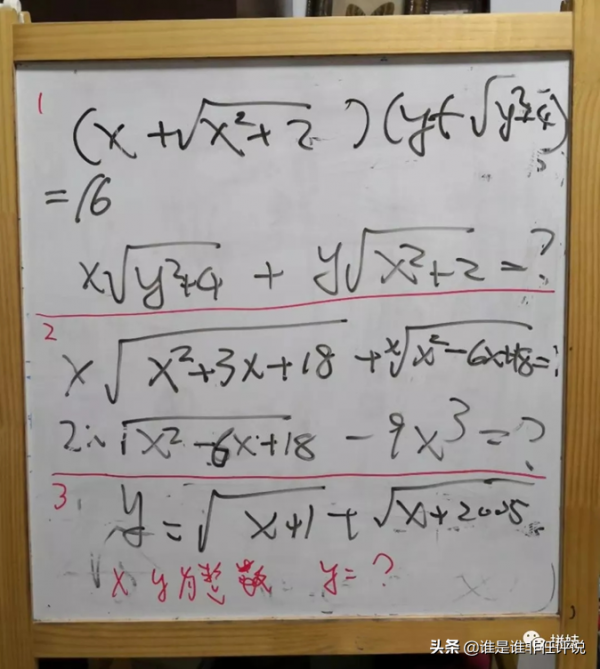 1
(x + √(x²+2)) (y + √(y²+4))
= 16
x√(y²+4) + y√(x²+2) = ?
2
x√(x²+3x+18) + x√(x²-6x+18) = 
√(x²-6x+18) - 9x³ = ?
3
y = √(x+1) + √(x+2005)
x y 为整数 y = ?
头条 @谁是谁非任评说
拼娃